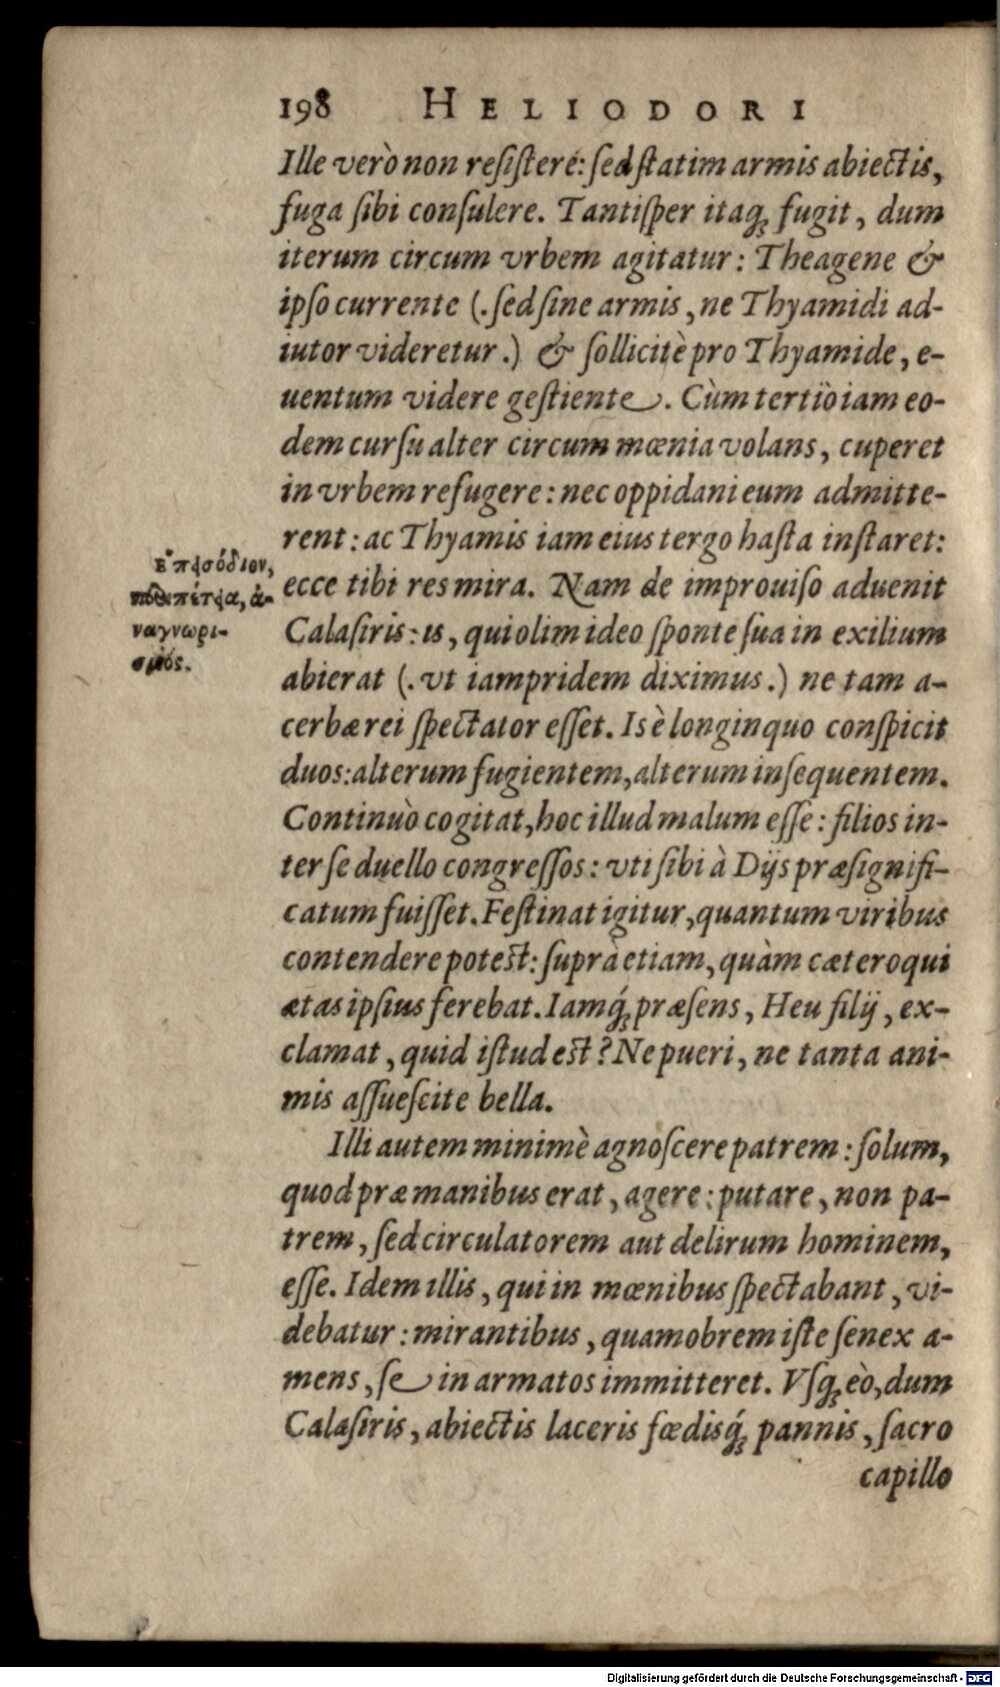 198 HELIODORI
Ille verò non reſiſtere: ſed ſtatim armis abiectis,
fuga ſibi conſulere. Tantiſper itaq́; fugit, dum
iterum circum vrbem agitatur: Theagene &
ipſo currente (.ſed ſine armis, ne Thyamidi ad-
iutor videretur.) & ſollicitè pro Thyamide, e-
uentum videre geſtiente. Cùm tertiò iam eo-
dem curſu alter circum mœnia volans, cuperet
in vrbem refugere: nec oppidani eum admitte-
rent: ac Thyamis iam eius tergo haſta inſtaret:
ecce tibi res mira. Nam de improuiſo aduenit
Calaſiris: is, qui olim ideo ſponte ſua in exilium
abierat (.vt iampridem diximus.) ne tam a-
cerbæ rei ſpectator eſſet. Is è longinquo conſpicit
duos: alterum fugientem, alterum inſequentem.
Continuò cogitat, hoc illud malum eſſe: filios in-
ter ſe duello congreſſos: vti ſibi à Dijs præſignifi-
catum fuiſſet. Feſtinat igitur, quantum viribus
contendere poteſt: ſuprà etiam, quàm cæteroqui
ætas ipſius ferebat. Iamq́; præſens, Heu filij, ex-
clamat, quid iſtud eſt? Ne pueri, ne tanta ani-
mis aſſueſcite bella.
Illi autem minimè agnoſcere patrem: ſolum,
quod præ manibus erat, agere: putare, non pa-
trem, ſed circulatorem aut delirum hominem,
eſſe. Idem illis, qui in mœnibus ſpectabant, vi-
debatur: mirantibus, quamobrem iſte ſenex a-
mens, ſe in armatos immitteret. Vſq; eò, dum
Calaſiris, abiectis laceris fœdisq́; pannis, ſacro
capillo
ναγνωρι-
σμός.
Digitalisierung gefördert durch die Deutsche Forschungsgemeinschaft - DFG